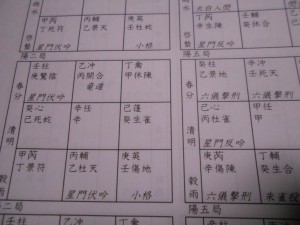 甲芮 丙輔 庚英
丁死符 乙景天 壬杜蛇
星門伏吟 小格
啓蟄
陽二局
壬柱 乙冲 丁禽
庚驚陰 丙開合 甲休陳
星門伏吟 竜遁
春分
癸心 辛任 己蓬
己死蛇 辛 癸生雀
清明
甲芮 丙輔 庚英
丁景符 乙杜天 壬傷地
星門伏吟 小格
穀雨
二局
壬柱 乙冲 丁禽
六儀擊刑
陽五局
癸柱 辛冲
乙景地 壬死天
六儀擊刑 六儀擊刑
春分
己心 甲任
丙杜雀 甲
星門反吟
清明
庚芮 丁輔
辛傷陳 癸生合
六儀擊刑 朱雀投
穀雨
陽五局